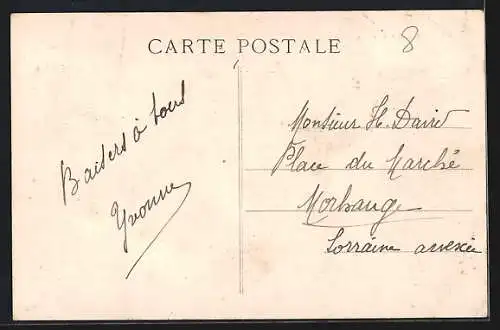 CARTE POSTALE
8
Baisers à tous
Yvonne
Monsieur H. David
Place du Marché
Morhange
Lorraine annexée